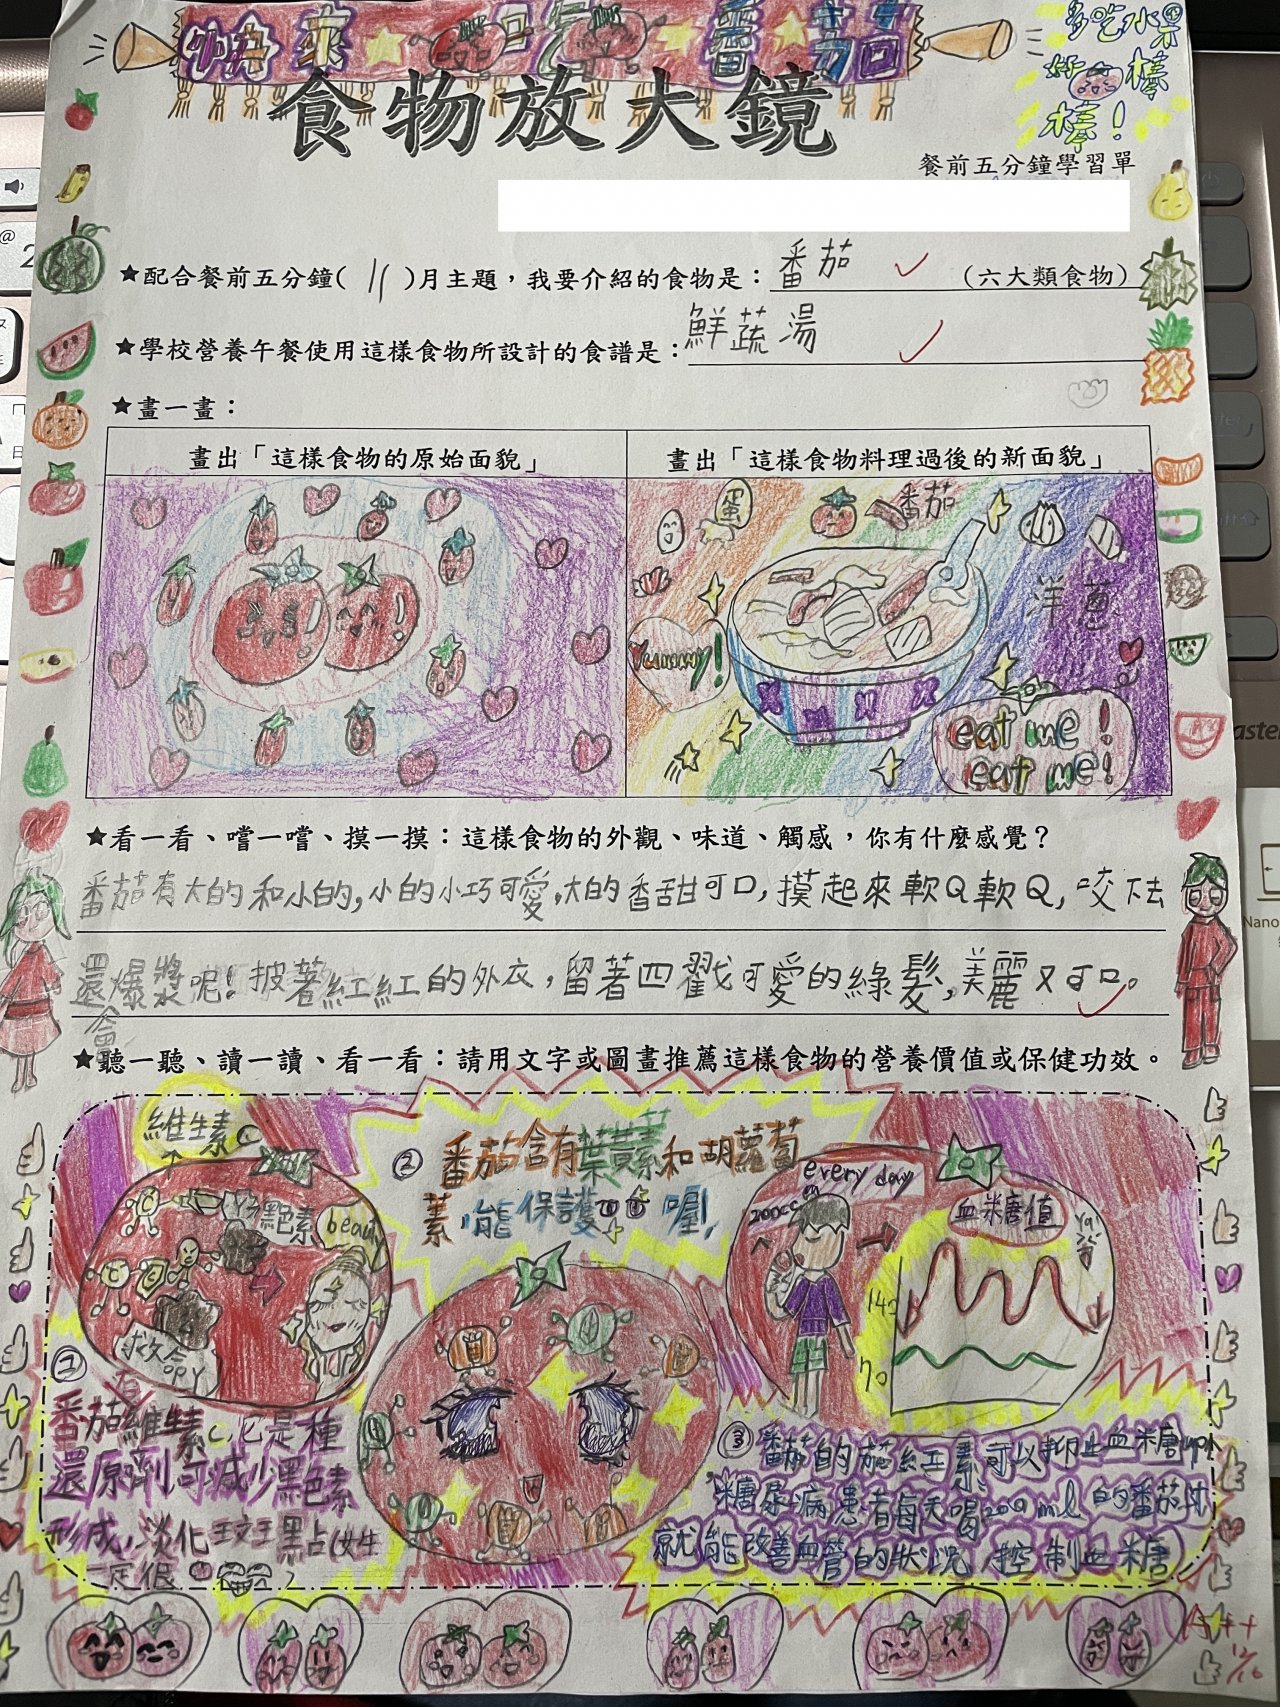 快來吃番茄
多吃水果
妙
棒棒！
食物放大鏡
餐前五分鐘學習單
★配合餐前五分鐘( 11 )月主題，我要介紹的食物是：番茄 (六大類食物)
★學校營養午餐使用這樣食物所設計的食譜是：鮮蔬湯
★畫一畫：
畫出「這樣食物的原始面貌」
畫出「這樣食物料理過後的新面貌」
蛋
番茄
洋蔥
Yummy!
eat me!
eat me!
★看一看、嚐一嚐、摸一摸：這樣食物的外觀、味道、觸感，你有什麼感覺？
番茄有大的和小的,小的小巧可愛,大的香甜可口,摸起來軟Q軟Q,咬下去
還會爆漿呢!披著紅紅的外衣,留著四戳可愛的綠髮,美麗又可口。
★聽一聽、讀一讀、看一看：請用文字或圖畫推薦這樣食物的營養價值或保健功效。
維生素C
黑色素
beauty
救命Y
①
番茄有維生素C,它是種
還原劑可減少黑色素
形成,淡化斑點(女生
一定很
② 番茄含有葉黃素和胡蘿蔔
素,能保護 喔!
every day
200cc
血糖值
Ya!
140
70
③ 番茄的茄紅素可以抑止血糖
糖尿病患者每天喝200ml的番茄汁
就能改善血管的狀況,控制血糖
A++
12/16